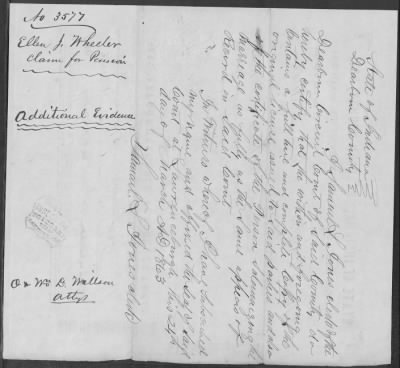 No 3577
Ellen J. Wheeler
Claim for Pension
Additional Evidence
O & Wm D. Willson
Attys
State of Indiana
Dearborn County
I Samuel L Jones clerk of the
Dearborn Circuit Court of said County do
hereby certify that the within and foregoing
contains a full true and complete copy of the
original license issued to said parties and also
of the certificate of the person solemnizing the
marriage as fully as the same appears of
Record in said Court
In Witness whereof I have subscribed
my name and affixed the seal of said
Court at Lawrenceburgh this 24th
day of March A.D. 1863
Samuel L Jones clerk